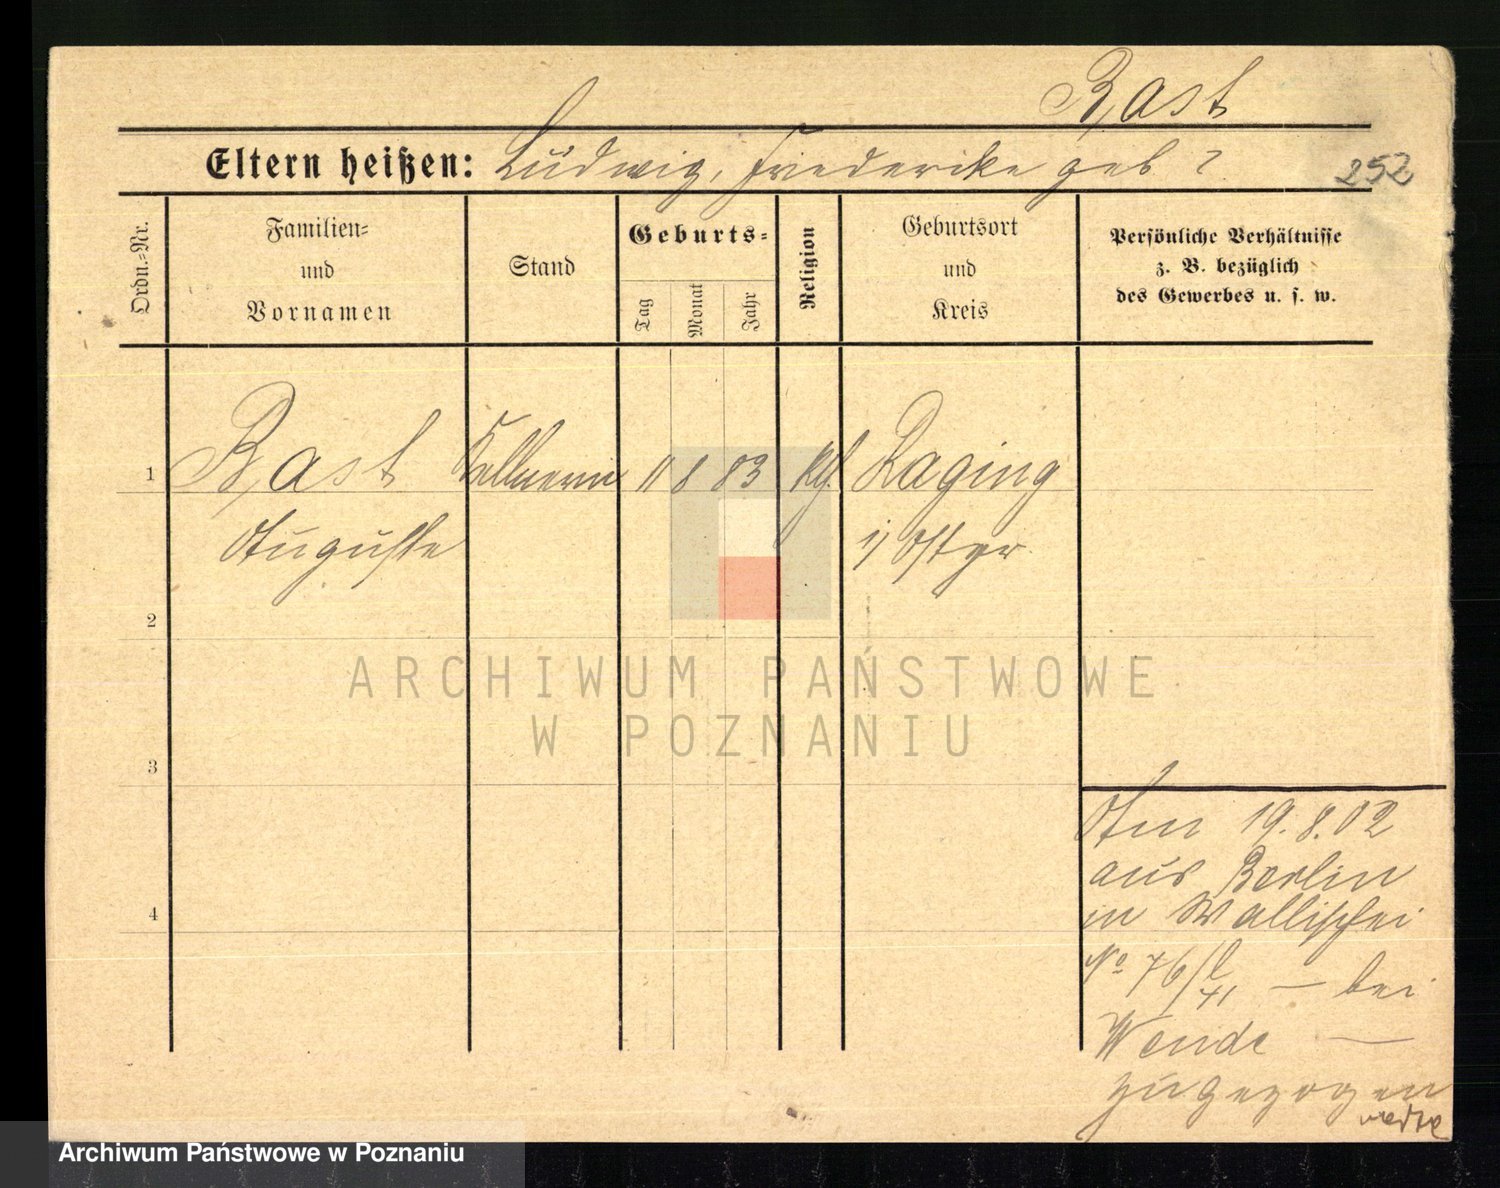 Rast
Eltern heißen: Ludwig, Friederike geb ?
252
Ordn.-Nr.
Familien-
und
Vornamen
Stand
Geburts-
Tag
Monat
Jahr
Religion
Geburtsort
und
Kreis
Persönliche Verhältnisse
z. B. bezüglich
des Gewerbes u. s. w.
1
Rast Kellnerin 11 8 83 Raging
Auguste i/ Ostpr.
2
3
4
Am 19.8.02
aus Berlin
in Wallischei
No 76/
— bei
Wende —
zugezogen
ARCHIWUM PAŃSTWOWE
W POZNANIU
Archiwum Państwowe w Poznaniu